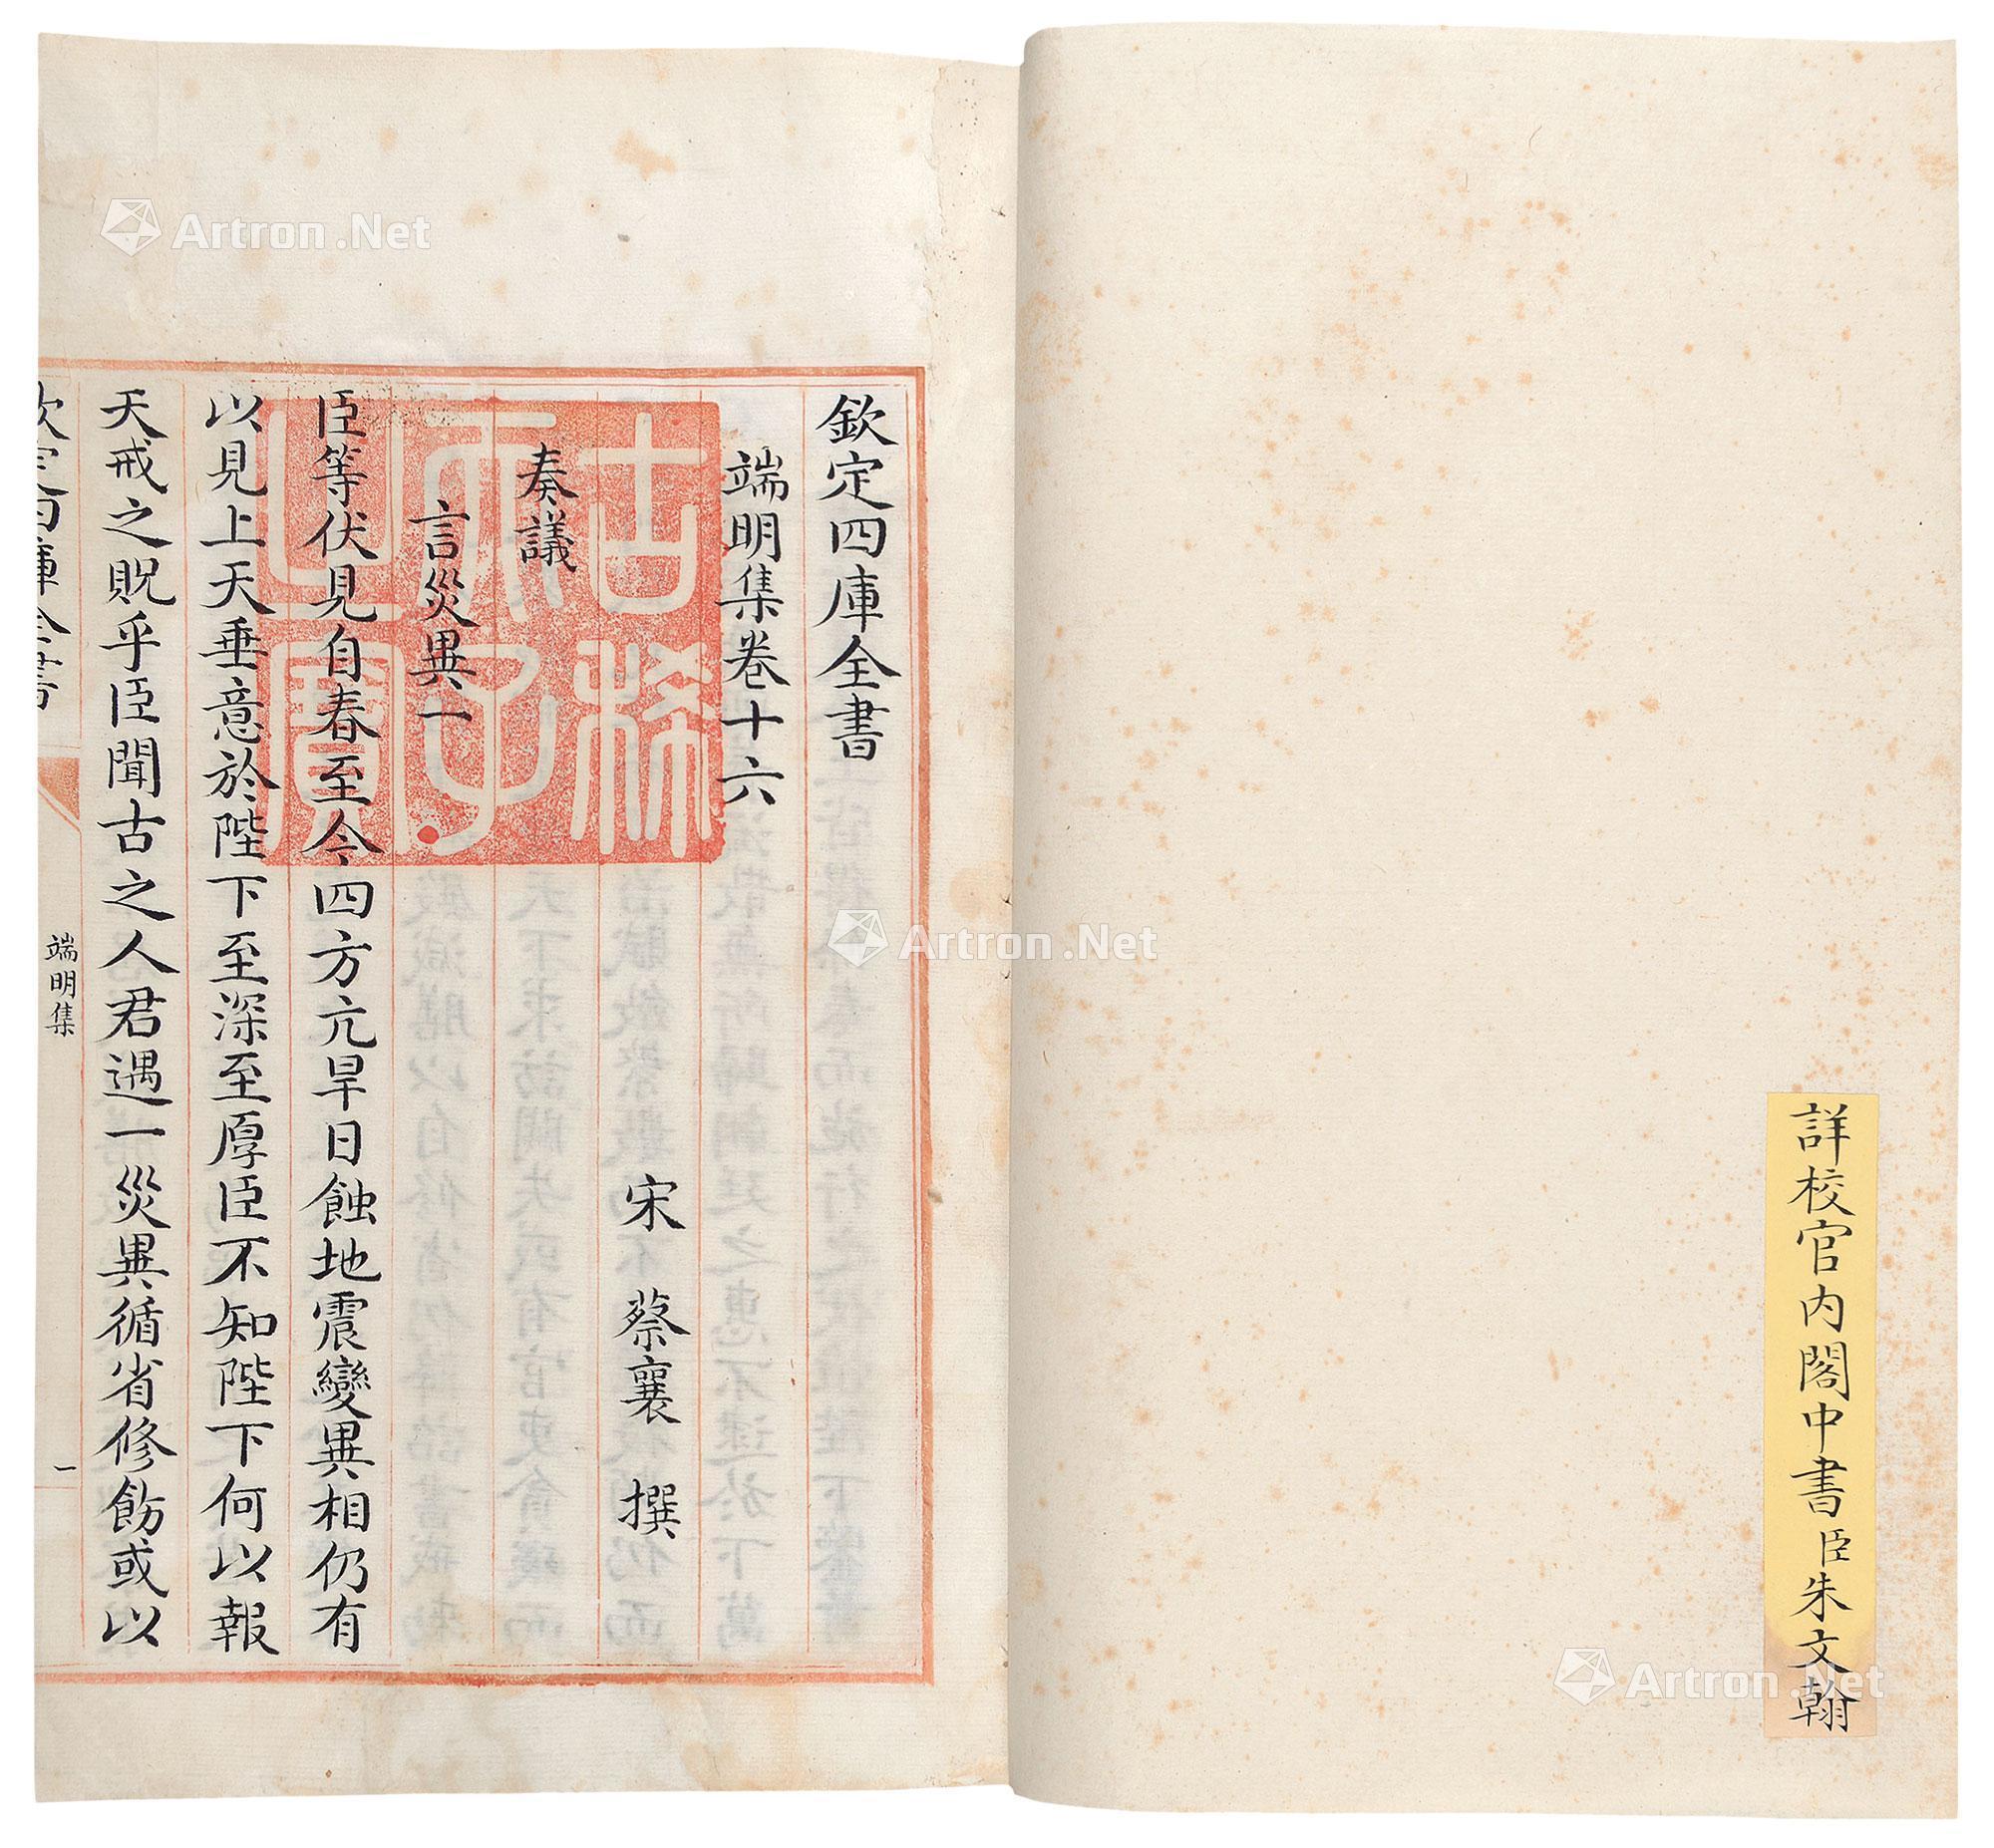 詳校官內閣中書臣朱文翰
欽定四庫全書
端明集卷十六
宋 蔡襄 撰
奏議
言災異一
臣等伏見自春至今四方亢旱日蝕地震變異相仍有
以見上天垂意於陛下至深至厚臣不知陛下何以報
天戒之貺乎臣聞古之人君遇一災異循省修飭或以
欽定四庫全書
端明集
一
古稀天子之寶
Artron.Net
Artron.Net
Artron.Net